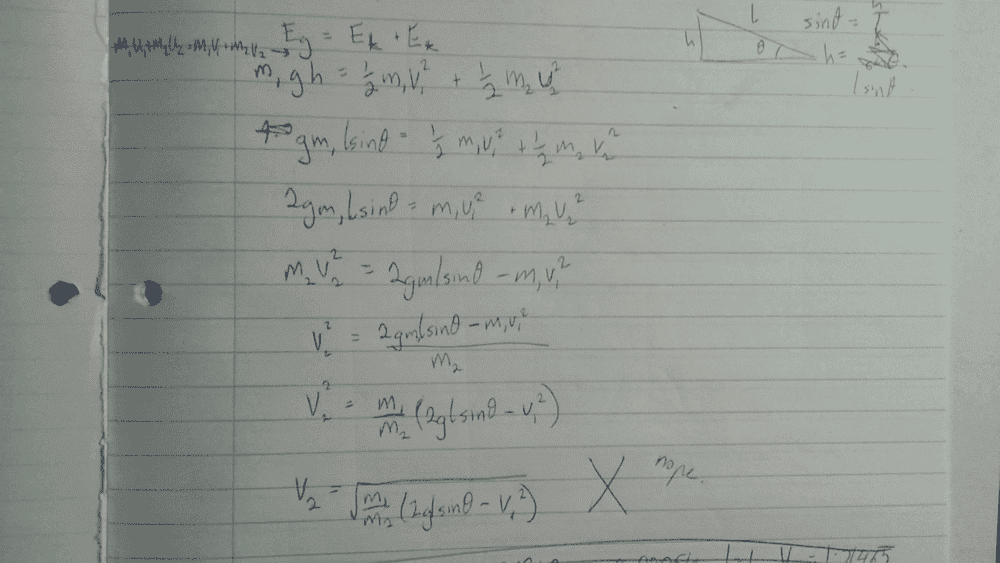 l
h θ
sinθ = h
l
h =
lsinθ
m₁u₁+m₂u₂ = m₁v₁+m₂v₂ →
E_g = E_k + E_k
m₁gh = ½m₁v₁² + ½m₂v₂²
gm₁lsinθ = ½m₁v₁² + ½m₂v₂²
2gm₁lsinθ = m₁v₁² + m₂v₂²
m₂v₂² = 2gm₁lsinθ - m₁v₁²
v₂² = (2gm₁lsinθ - m₁v₁²)/m₂
v₂² = m₁/m₂ (2glsinθ - v₁²)
v₂ = √(m₁/m₂ (2glsinθ - v₁²)) X nope.